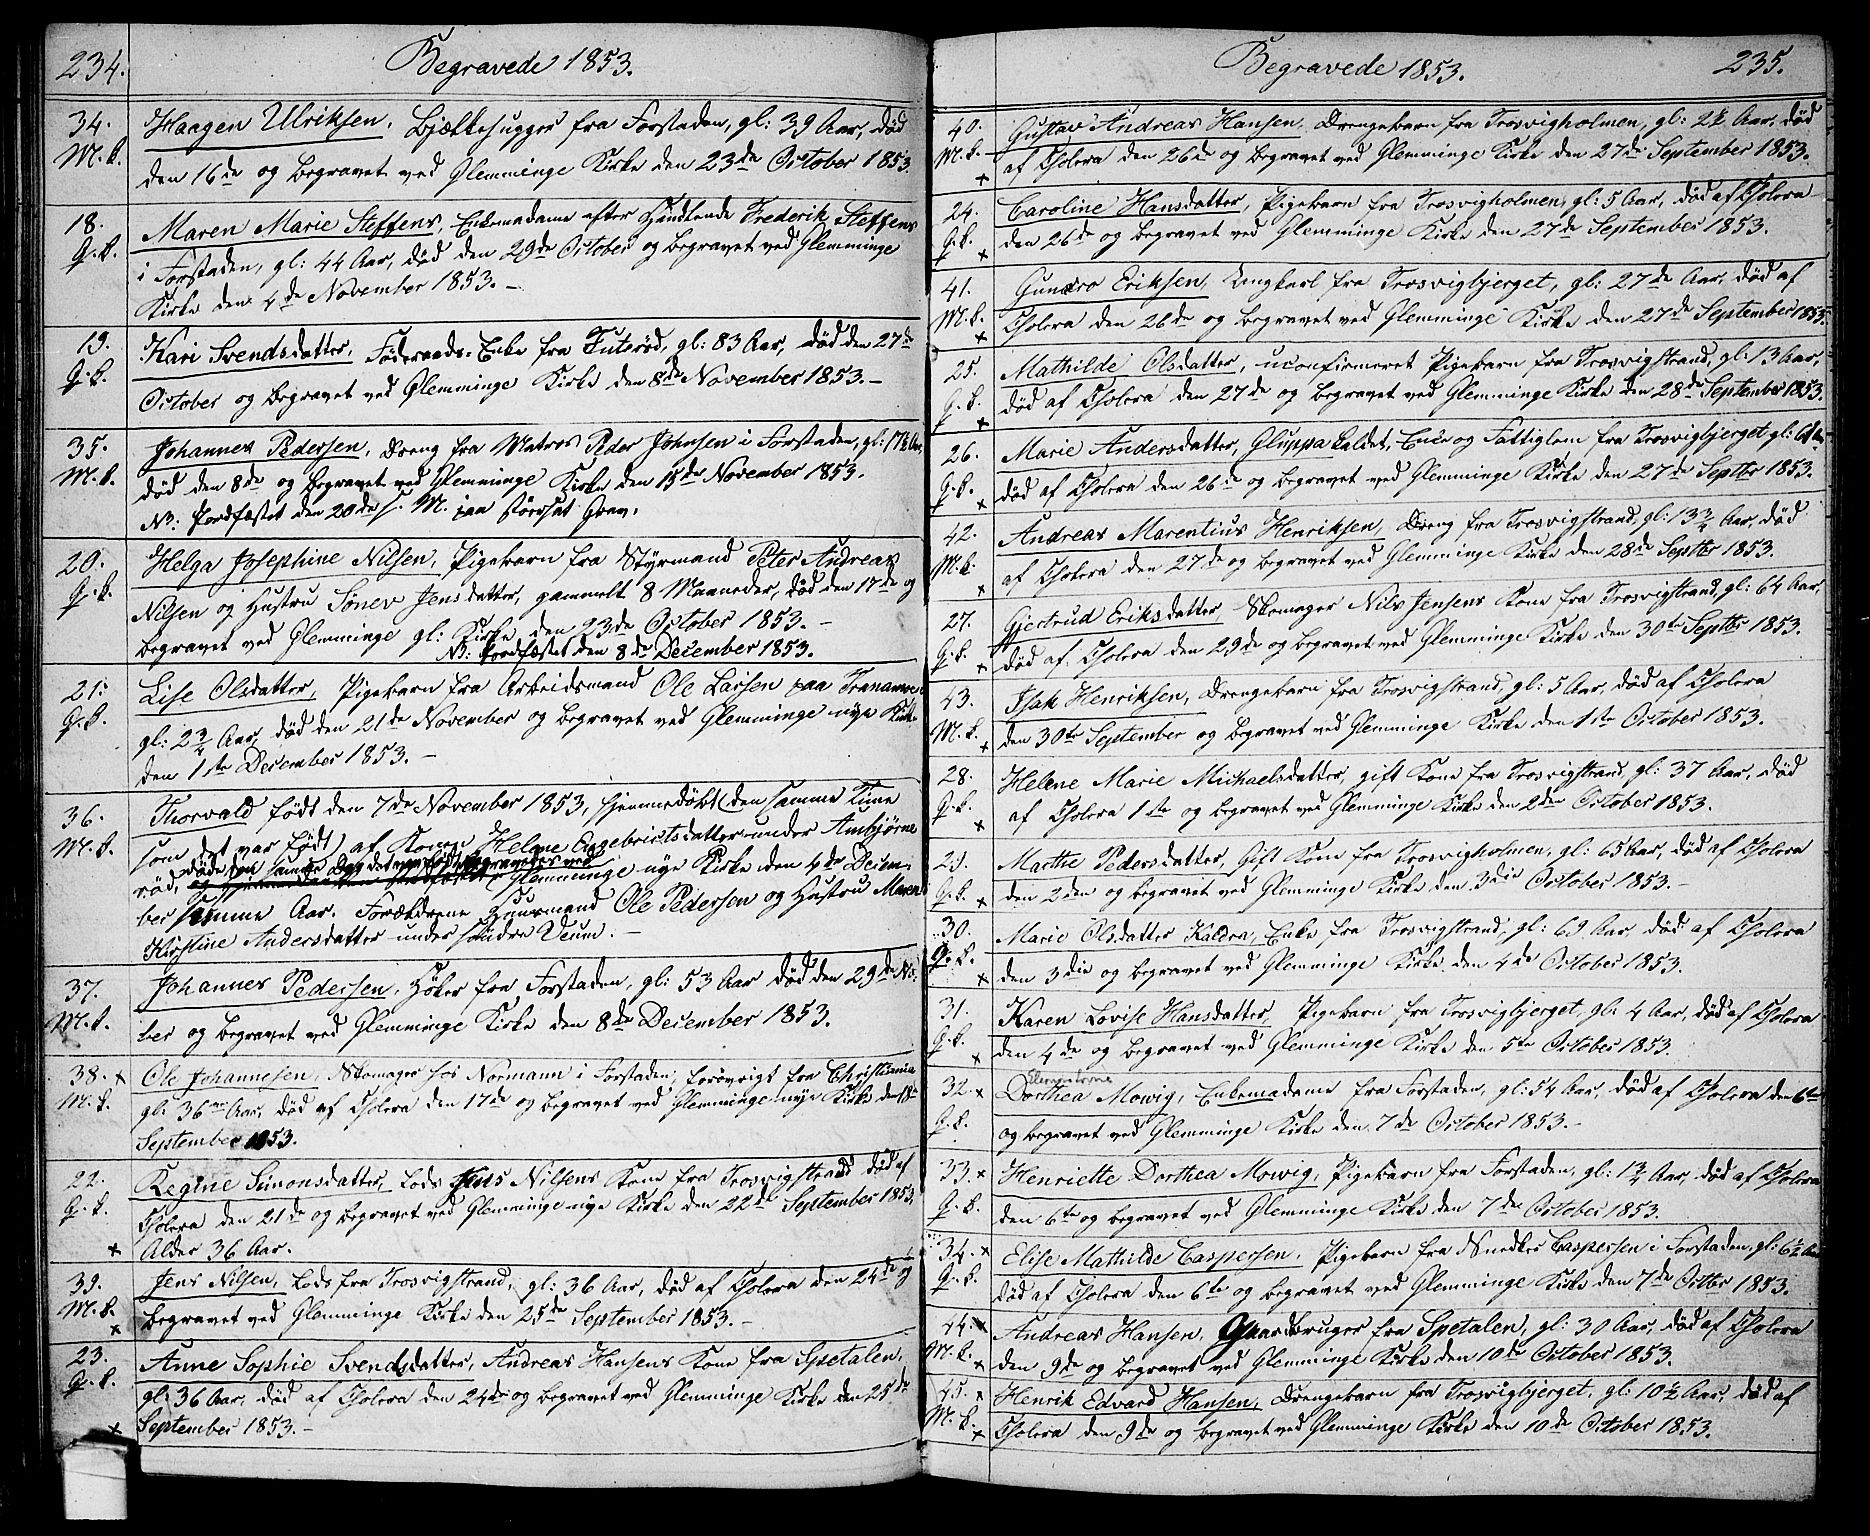 234.
Begravede 1853.
34. Haagen Ulriksen, Bjælkehugger fra Forstaden, gl: 39 Aar, død
M.k. den 16de og begravet ved Glemminge Kirke den 23de October 1853.
18. Maren Marie Steffens, Enkemadame efter Handlende Frederik Steffens
Q.k. i Forstaden, gl: 44 Aar, død den 29de October og begravet ved Glemminge
Kirke den 4de November 1853.-
19. Kari Svendsdatter, Føderaads-Enke fra Tuterød, gl: 83 Aar, død den 27de
Q.k. October og begravet ved Glemminge Kirke den 8de November 1853.-
35. Johannes Pedersen, Dreng fra Matros Peder Johnsen i Forstaden, gl: 17½ Aar,
M.k. død den 8de og begravet ved Glemminge Kirke den 15de November 1853.
NB: Jordfæstet den 20de s. M. paa Grav.
20. Helga Josephine Nilsen, Pigebarn fra Styrmand Peter Andreas
Q.k. Nilsen og Hustru Sønev Jensdatter, gammelt 8 Maaneder, død den 17de og
begravet ved Glemminge gl: Kirke den 23de October 1853.-
NB: Jordfæstet den 8de December 1853.
21. Lise Olsdatter, Pigebarn fra Arbeidsmand Ole Larsen paa
Q.k. gl: 2¾ Aar, død den 21de November og begravet ved Glemminge nye Kirke
den 1ste December 1853.-
36. Thorvald født den 7de November 1853, hjemmedøbt (den samme Time
M.k. som det var født) af Konen Helene Engebrictsdatter under Ambjørns
døde den samme Dag det var født begravedes ved
rød, Glemminge nye Kirke den 4de Decem-
ber samme Aar. Forældrene Huusmand Ole Pedersen og Hustru Maren
Kirstine Andersdatter under søndre Veum.-
37. Johannes Pedersen, Høker fra Forstaden, gl: 53 Aar død den 29de No:
M.k. ber og begravet ved Glemminge Kirke den 8de December 1853.
38. x Ole Johannesen, Skomager hos Normann i Forstaden, forøvrigt fra Christiania
M.k. gl: 36 Aar, død af Cholera den 17de og begravet ved Glemminge nye Kirke den 18de
September 1853.
22. Regine Simonsdatter, Lods Jens Nilsens Kone fra Trosvigstrand død af
Q.k. Cholera den 21de og begravet ved Glemminge nye Kirke den 22de September 1853,
x Alder 36 Aar.
39. Jens Nilsen, Lods fra Trosvigstrand, gl: 36 Aar, død af Cholera den 24de og
M.k. x begravet ved Glemminge Kirke den 25de September 1853.-
23. Anne Sophie Svendsdatter, Andreas Hansens Kone fra Spetalen,
Q.k. gl: 36 Aar, død af Cholera den 24de og begravet ved Glemminge Kirke den 25de
x September 1853.-
Begravede 1853.
235.
40. Gustav Andreas Hansen, Drengebarn fra Trosvigholmen, gl: 2½ Aar, død
M.k. x af Cholera den 26de og begravet ved Glemminge Kirke den 27de September 1853.
24. Caroline Hansdatter, Pigebarn fra Trosvigholmen, gl: 5 Aar, død af Cholera
Q.k. x den 26de og begravet ved Glemminge Kirke den 27de September 1853.
41. Gunero Eriksen, Ungkarl fra Trosvigbjerget, gl: 27de Aar, død af
M.k. x Cholera den 26de og begravet ved Glemminge Kirke den 27de September 1853.
25. Mathilde Olsdatter, uconfirmeret Pigebarn fra Trosvigstrand, gl: 13 Aar,
Q.k. x død af Cholera den 27de og begravet ved Glemminge Kirke den 28de September 1853.
26. Marie Andersdatter, Gluppa kaldet, Enke og Fattiglem fra Trosvigbjerget gl: 61 Aar
Q.k. x død af Cholera den 26de og begravet ved Glemminge Kirke den 27de Septbr 1853.
42. Andreas Marentius Henriksen, Dreng fra Trosvigstrand, gl: 13¾ Aar, død
M.k. x af Cholera den 27de og begravet ved Glemminge Kirke den 28de Septbr 1853.
27. Gjertrud Eriksdatter, Skomager Nils Jensens Kone fra Trosvigstrand, gl: 64 Aar,
Q.k. x død af Cholera den 29de og begravet ved Glemminge Kirke den 30te Septbr 1853.
43. Isak Henriksen, Drengebarn fra Trosvigstrand, gl: 5 Aar, død af Cholera
M.k. x den 30te September og begravet ved Glemminge Kirke den 1ste October 1853.
28. Helene Marie Michaelsdatter, gift Kone fra Trosvigstrand, gl: 37 Aar, død
Q.k. x af Cholera 1ste og begravet ved Glemminge Kirke den 2den October 1853.
29. Marthe Pedersdatter, Gift Kone fra Trosvigholmen, gl: 65 Aar, død af Cholera
Q.k. x den 2den og begravet ved Glemminge Kirke den 3die October 1853.-
30. Marie Olsdatter Kaldra, Enke fra Trosvigstrand, gl: 69 Aar død af Cholera
Q.k. x den 3die og begravet ved Glemminge Kirke den 4de October 1853.
31. Karen Lovise Hansdatter, Pigebarn fra Trosvigbjerget, gl: 4 Aar, død af Cholera
Q.k. x den 4de og begravet ved Glemminge Kirke den 5te October 1853.
32. x Dorthea Mowig, Enkemadame fra Forstaden, gl: 54 Aar, død af Cholera den 6te
Q.k. og begravet ved Glemminge Kirke den 7de October 1853.-
33. x Henriette Dorthea Mowig, Pigebarn fra Forstaden, gl: 1¾ Aar, død af Cholera
Q.k. den 6te og begravet ved Glemminge Kirke den 7de October 1853.
34. x Elise Mathilde Caspersen, Pigebarn fra Snedker Caspersen i Forstaden, gl: 6½ Aar
Q.k. død af Cholera den 6te og begravet ved Glemminge Kirke den 7de Octbr 1853.
44. x Andreas Hansen, Gaardbruger fra Spetalen, gl: 30 Aar, død af Cholera
M.k. x den 9de og begravet ved Glemminge Kirke den 10de October 1853.
45. x Henrik Edvard Hansen, Drengebarn fra Trosvigbjerget, gl: 10½ Aar, død af
M.k. x Cholera den 9de og begravet ved Glemminge Kirke den 10de October 1853.